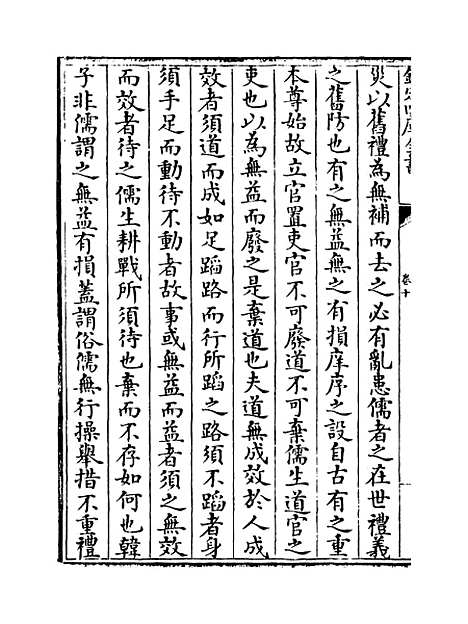 欽定四庫全書
卷十
災以舊禮為無補而去之必有亂患儒者之在世禮義
之舊防也有之無益無之有損庠序之設自古有之重
本尊始故立官置吏官不可廢道不可棄儒生道官之
吏也以為無益而廢之是棄道也夫道無成效於人成
效者須道而成如足蹈路而行所蹈之路須不蹈者身
須手足而動待不動者故事或無益而益者須之無效
而效者待之儒生耕戰所須待也棄而不存如何也韓
子非儒謂之無益有損蓋謂俗儒無行操舉措不重禮